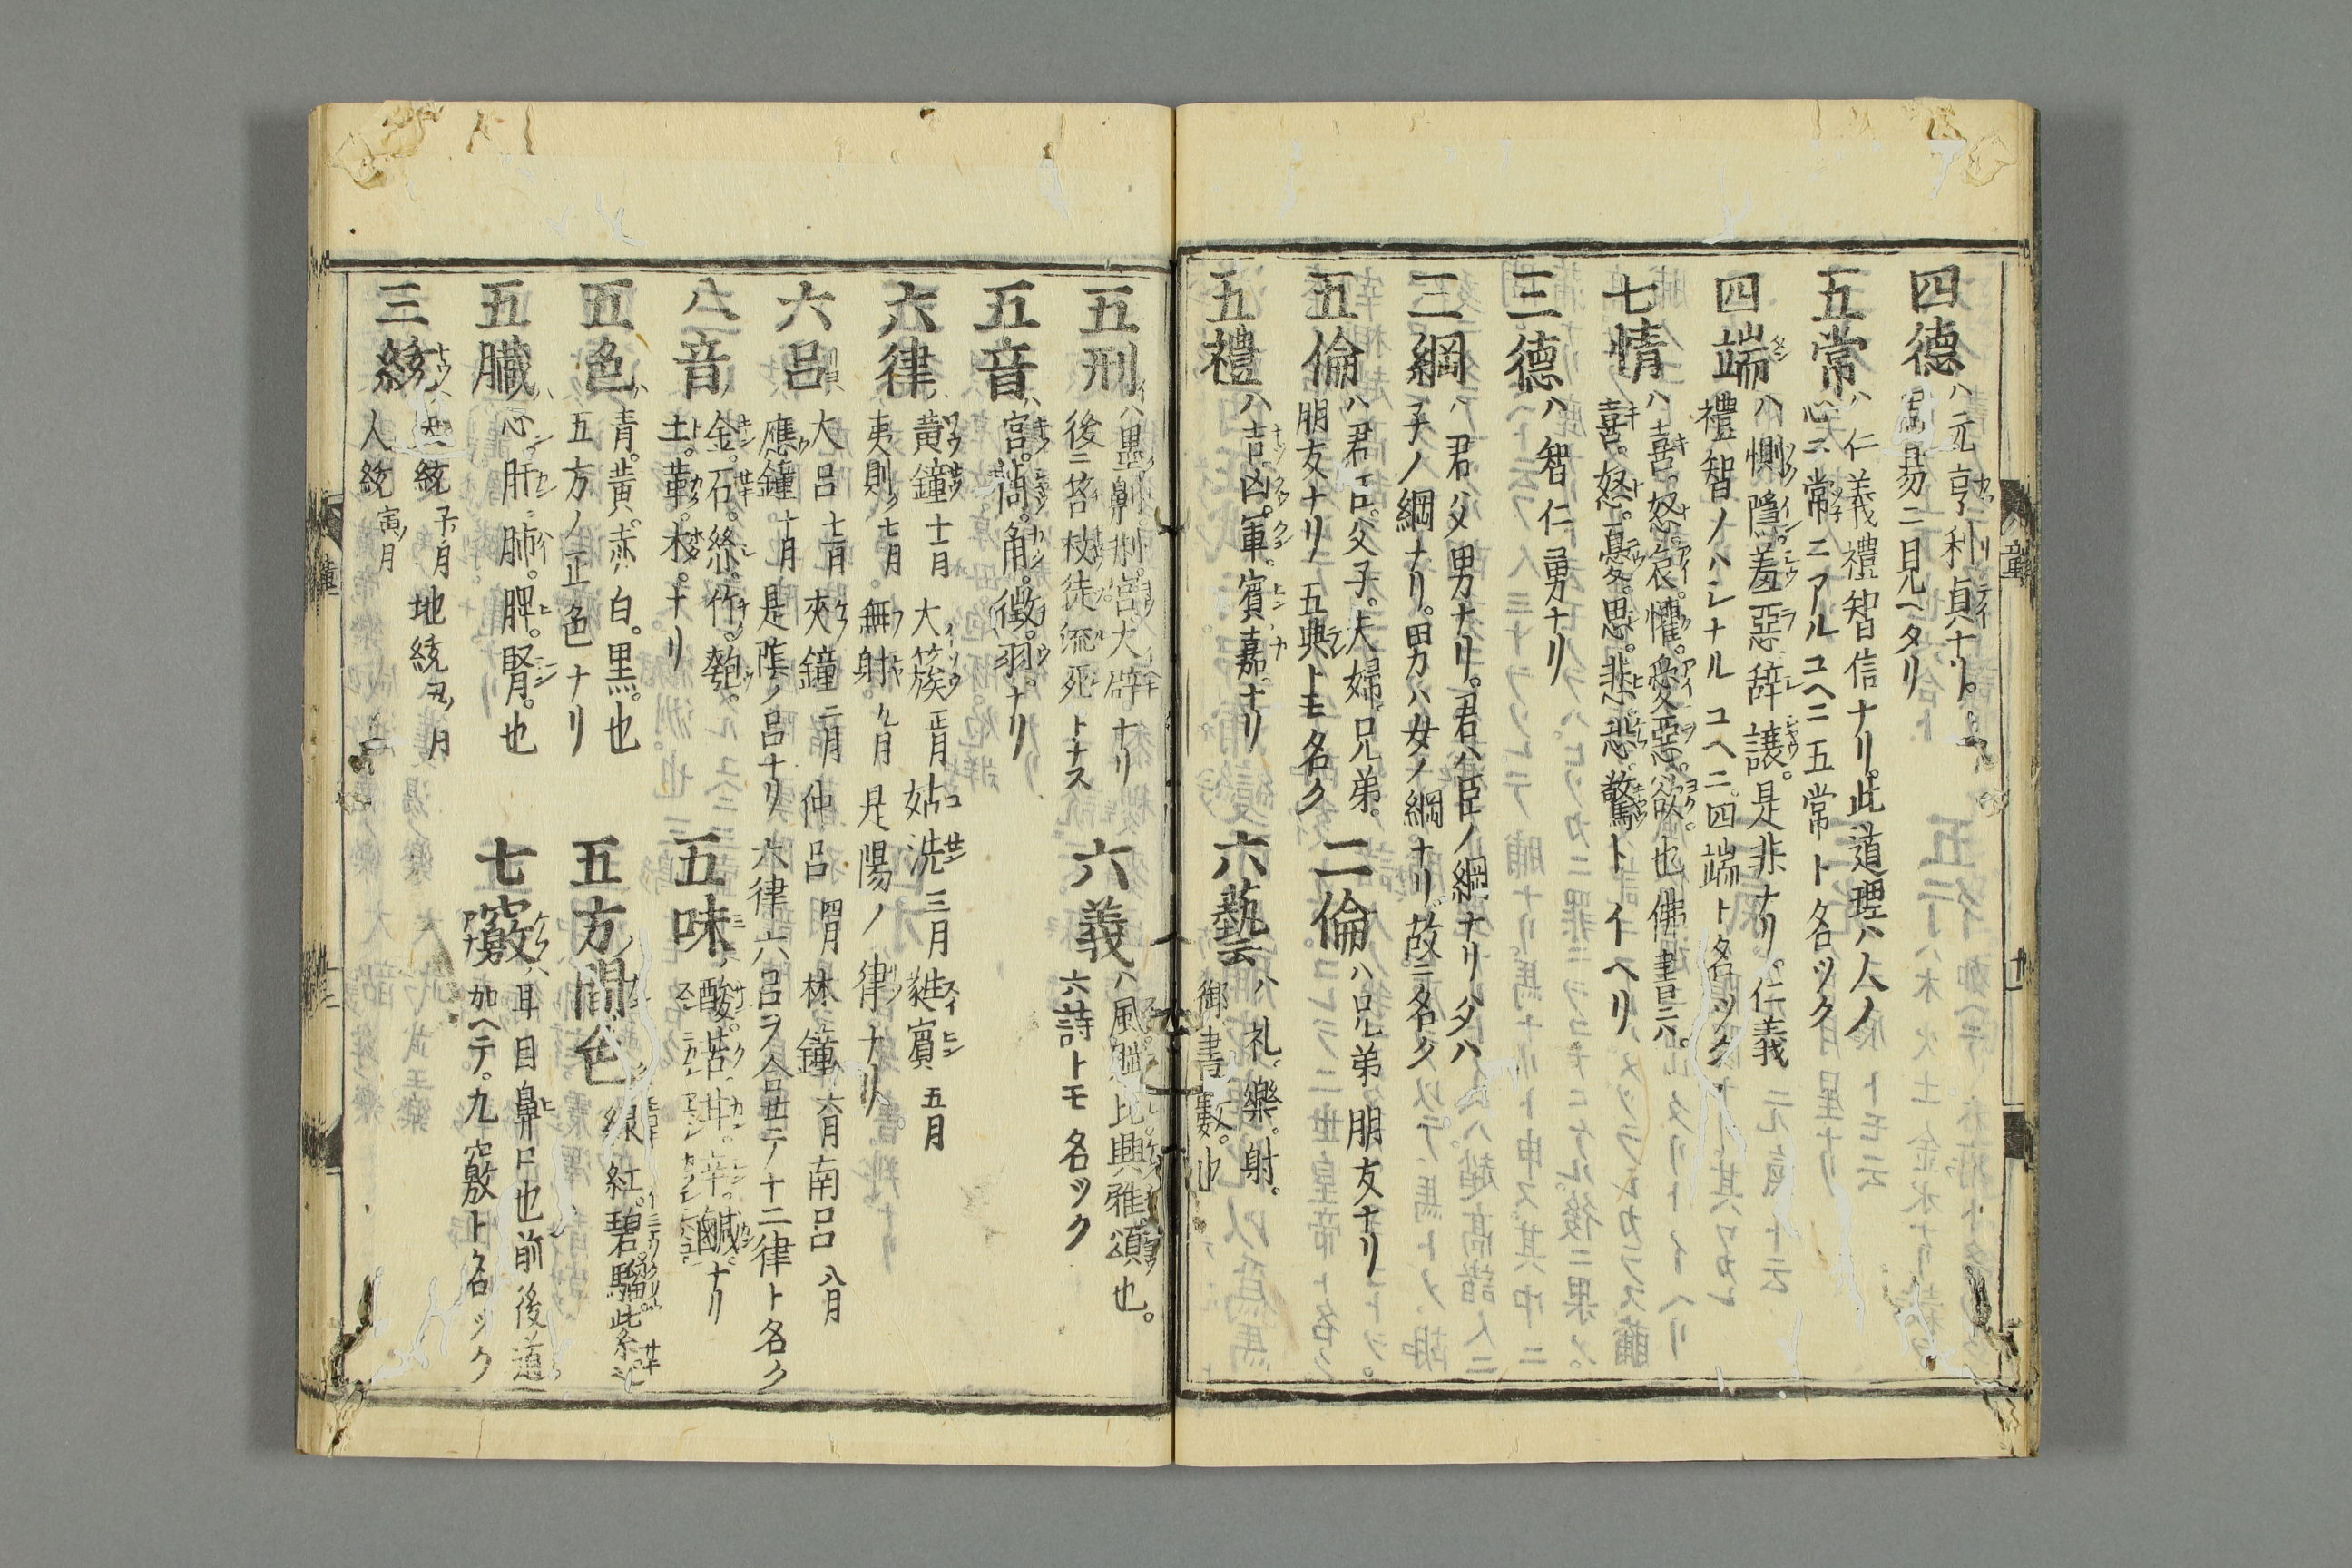 四德ハ元亨利貞ナリ。
周易ニ見ヘタリ
五常ハ仁義禮智信ナリ。此道理ハ人ノ
心ニ常ニアルユヘニ五常ト名ツク
四端ハ惻隱。羞惡。辞讓。是非ナリ。仁義
禮智ノハシナルユヘニ。四端ト名ツク
七情ハ喜。怒。哀。懼。愛。惡。欲。也佛書ニハ。
喜。怒。憂。思。悲。恐。驚トイヘリ
三德ハ智仁勇ナリ
三綱ハ君父男ナリ。君ハ臣ノ綱ナリ父ハ
子ノ綱ナリ。男ハ女ノ綱ナリ故ニ名ク
五倫ハ君臣。父子。夫婦。兄弟。
朋友ナリ五典トモ名ク
二倫ハ兄弟朋友ナリ
五禮ハ吉。凶。軍。賓。嘉。ナリ
六藝ハ礼。樂。射。
御。書。數。也
五刑ハ墨劓剕宮大辟ナリ
後ニ笞杖徒流死トナス
六義ハ風賦比興雅頌也。
六詩トモ名ツク
五音ハ宮。商。角。徴。羽。ナリ
六律黄鐘十一月大簇正月姑洗三月蕤賓五月
夷則七月無射九月是陽ノ律ナリ
六呂大呂十二月夾鐘二月仲呂四月林鐘六月南呂八月
應鐘十月是陰ノ呂ナリ六律六呂ヲ合せテ十二律ト名ク
八音金。石。絲。竹。匏。
土。革。木。ナリ
五味ハ酸。苦。甘。辛。鹹。ナリ
五色ハ青。黄。赤。白。黒。也
五方ノ正色ナリ
五方ノ間色緑紅。碧。騮。紫
五臓ハ心。肝。肺。脾。腎。也
七竅ハ耳目鼻口也前後道
加ヘテ。九竅ト名ツク
三統ハ天統子ノ月地統丑ノ月
人統寅ノ月